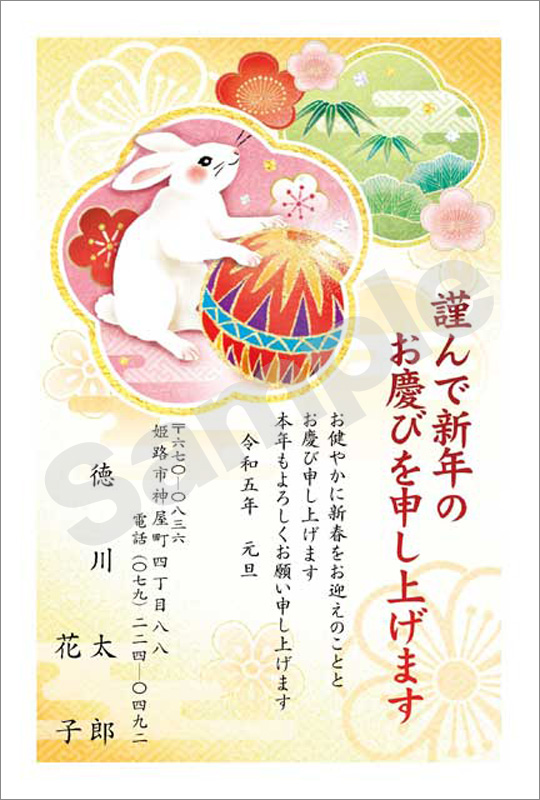 謹んで新年の
お慶びを申し上げます
お健やかに新春をお迎えのことと
お慶び申し上げます
本年もよろしくお願い申し上げます
令和五年 元旦
〒六七〇―〇八三六
姫路市神屋町四丁目八八
電話(〇七九)二二四―〇四九二
徳川 太郎
花子
Sample